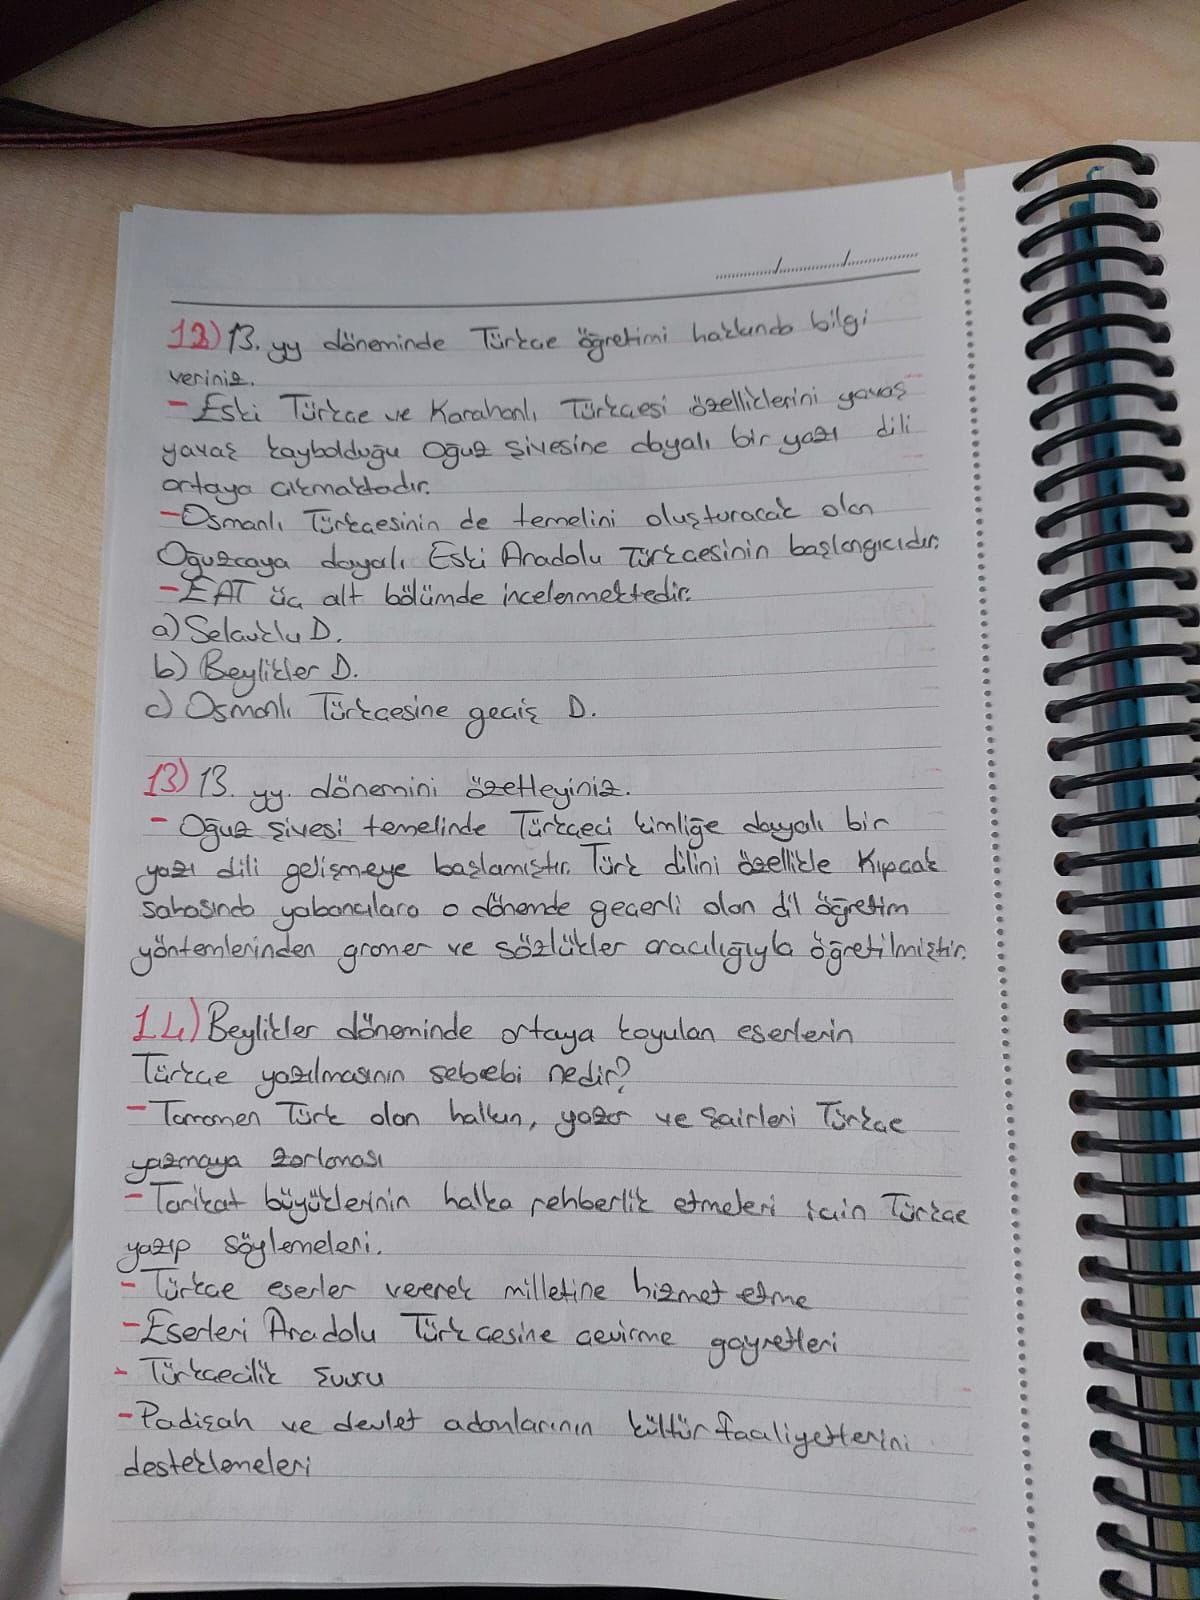 12) 13. yy döneminde Türkçe öğretimi hakkında bilgi
veriniz.
- Eski Türkçe ve Karahanlı Türkçesi özelliklerini yavaş
yavaş kaybolduğu Oğuz şivesine dayalı bir yazı dili
ortaya çıkmaktadır.
- Osmanlı Türkçesinin de temelini oluşturacak olan
Oğuzcaya dayalı Eski Anadolu Türkçesinin başlangıcıdır.
- EAT üç alt bölümde incelenmektedir.
a) Selçuklu D.
b) Beylikler D.
c) Osmanlı Türkçesine geçiş D.
13) 13. yy. dönemini özetleyiniz.
- Oğuz şivesi temelinde Türkçeci kimliğe dayalı bir
yazı dili gelişmeye başlamıştır. Türk dilini özellikle Kıpçak
sahasında yabancılara o dönemde geçerli olan dil öğretim
yöntemlerinden gramer ve sözlükler aracılığıyla öğretilmiştir.
14) Beylikler döneminde ortaya koyulan eserlerin
Türkçe yazılmasının sebebi nedir?
- Tamamen Türk olan halkın, yazar ve şairleri Türkçe
yazmaya zorlaması
- Tarikat büyüklerinin halka rehberlik etmeleri için Türkçe
yazıp söylemeleri.
- Türkçe eserler vererek milletine hizmet etme
- Eserleri Anadolu Türkçesine çevirme gayretleri
- Türkçecilik şuuru
- Padişah ve devlet adamlarının kültür faaliyetlerini
desteklemeleri